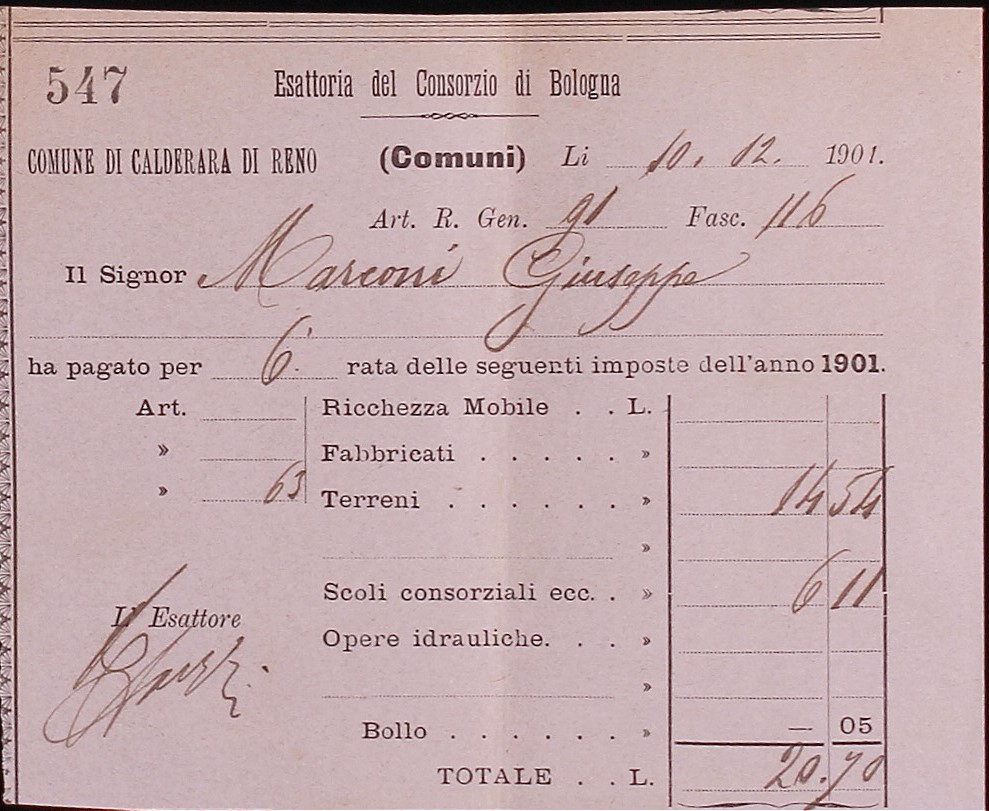 547 Esattoria del Consorzio di Bologna
COMUNE DI CALDERARA DI RENO (Comuni) Li 10. 12. 1901.
Art. R. Gen. 91 Fasc. 116
Il Signor Marconi Giuseppe
ha pagato per 6. rata delle seguenti imposte dell'anno 1901.
Art. Ricchezza Mobile . . L.
» Fabbricati . . . . . »
» 63 Terreni . . . . . . » 14 54
»
Scoli consorziali ecc. . » 6 11
Il Esattore
Opere idrauliche. . . »
»
Bollo . . . . . . » — 05
TOTALE . . L. 20.70